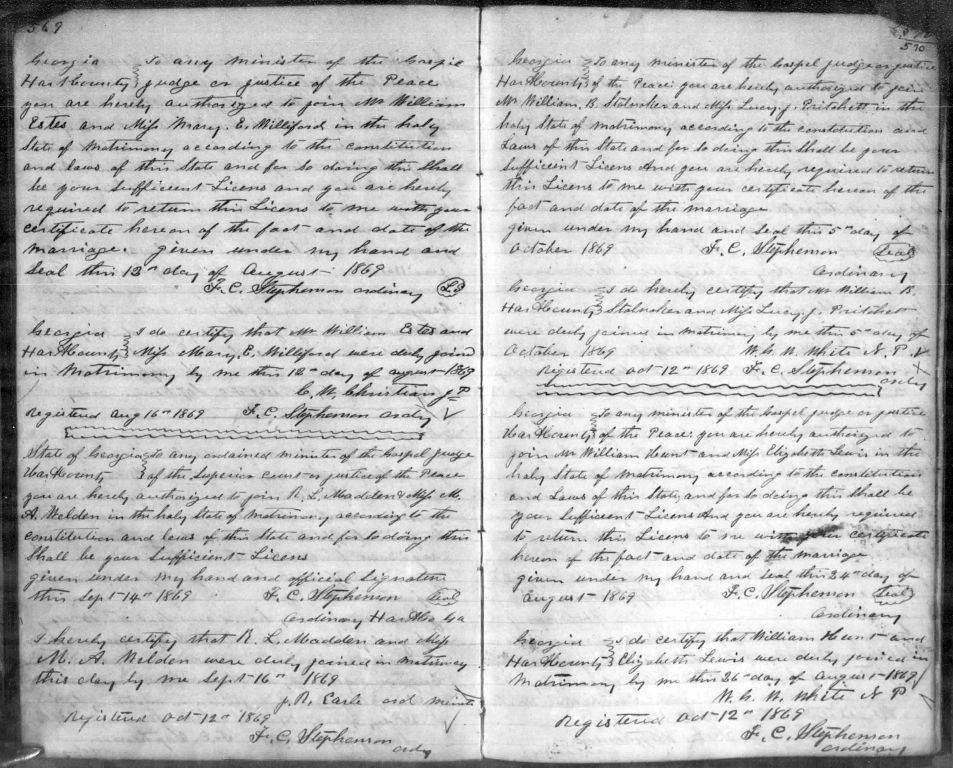 569
Georgia To any minister of the Gospel
Hart County judge or justice of the Peace
you are hereby authorized to join Mr William
Estes and Miss Mary. E. Williford in the holy
State of Matrimony according to the constitution
and laws of this State and for so doing this Shall
be your Sufficient Licens and you are hereby
required to return this Licens to me with your
certificate hereon of the fact and date of the
marriage. given under my hand and
Seal this 12th day of August 1869
F. C. Stephenson ordinary LS
Georgia I do certify that Mr William Estes and
Hart County Miss Mary. E. Williford were duly joined
in Matrimony by me this 12th day of august 1869
C. W. Christian J P
Registered Aug 16th 1869 F. C. Stephenson ordy
State of Georgia To any ordained minister of the Gospel judge
Hart County of the Superior court or justice of the Peace
you are hereby authorized to join R. L. Madden & Miss M.
A. Welden in the holy State of Matrimony according to the
constitution and laws of this State and for so doing this
Shall be your Sufficient Licens
given under my hand and official Signature
this Sept 14th 1869 F. C. Stephenson Seal
Ordinary Hart Co Ga
I hereby certify that R. L. Madden and Miss
M. A. Welden were duly joined in matrimony
this day by me Sept 16th 1869
J. R. Earle ord minister
Registered Oct 12th 1869
F. C. Stephenson
ordy
570
Georgia To any minister of the Gospel judge or justice
Hart County of the Peace: you are hereby authorized to join
Mr William. B. Stalnaker and Miss Lucy. J. Pritchett in the
holy State of matrimony according to the constitution and
Laws of this State and for so doing this Shall be your
Sufficient Licens And you are hereby required to return
this Licens to me with your certificate hereon of the
fact and date of the marriage
given under my hand and Seal this 5th day of
October 1869 F. C. Stephenson Seal
Ordinary
Georgia I do hereby certify that Mr William B.
Hart County Stalnaker and Miss Lucy. J. Pritchett
were duly joined in matrimony by me this 5th day of
October 1869 W. G. W. White N. P
Registered Oct 12th 1869 F. C. Stephenson
ordy
Georgia To any minister of the Gospel judge or justice
Hart County of the Peace: you are hereby authorized to
join Mr William Hunt and Miss Elizabeth Lewis in the
holy State of Matrimony according to the constitution
and Laws of this State, and for so doing this Shall be
your Sufficient Licens And you are hereby required
to return this Licens to me with your certificate
hereon of the fact and date of the marriage
given under my hand and Seal this 24th day of
August 1869 F. C. Stephenson Seal
Ordinary
Georgia I do certify that William Hunt and
Hart County Elizabeth Lewis were duly joined in
Matrimony by me this 26th day of August 1869
W. G. W. White N P
Registered Oct 12th 1869
F. C. Stephenson
ordinary